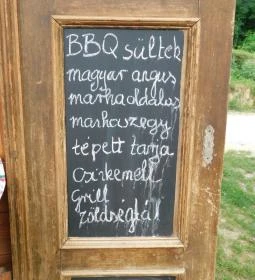 BBQ sültek
magyar angus
marhaoldalas
marhaszegy
tépett tarja
csirkemell
Grill
zöldségtál